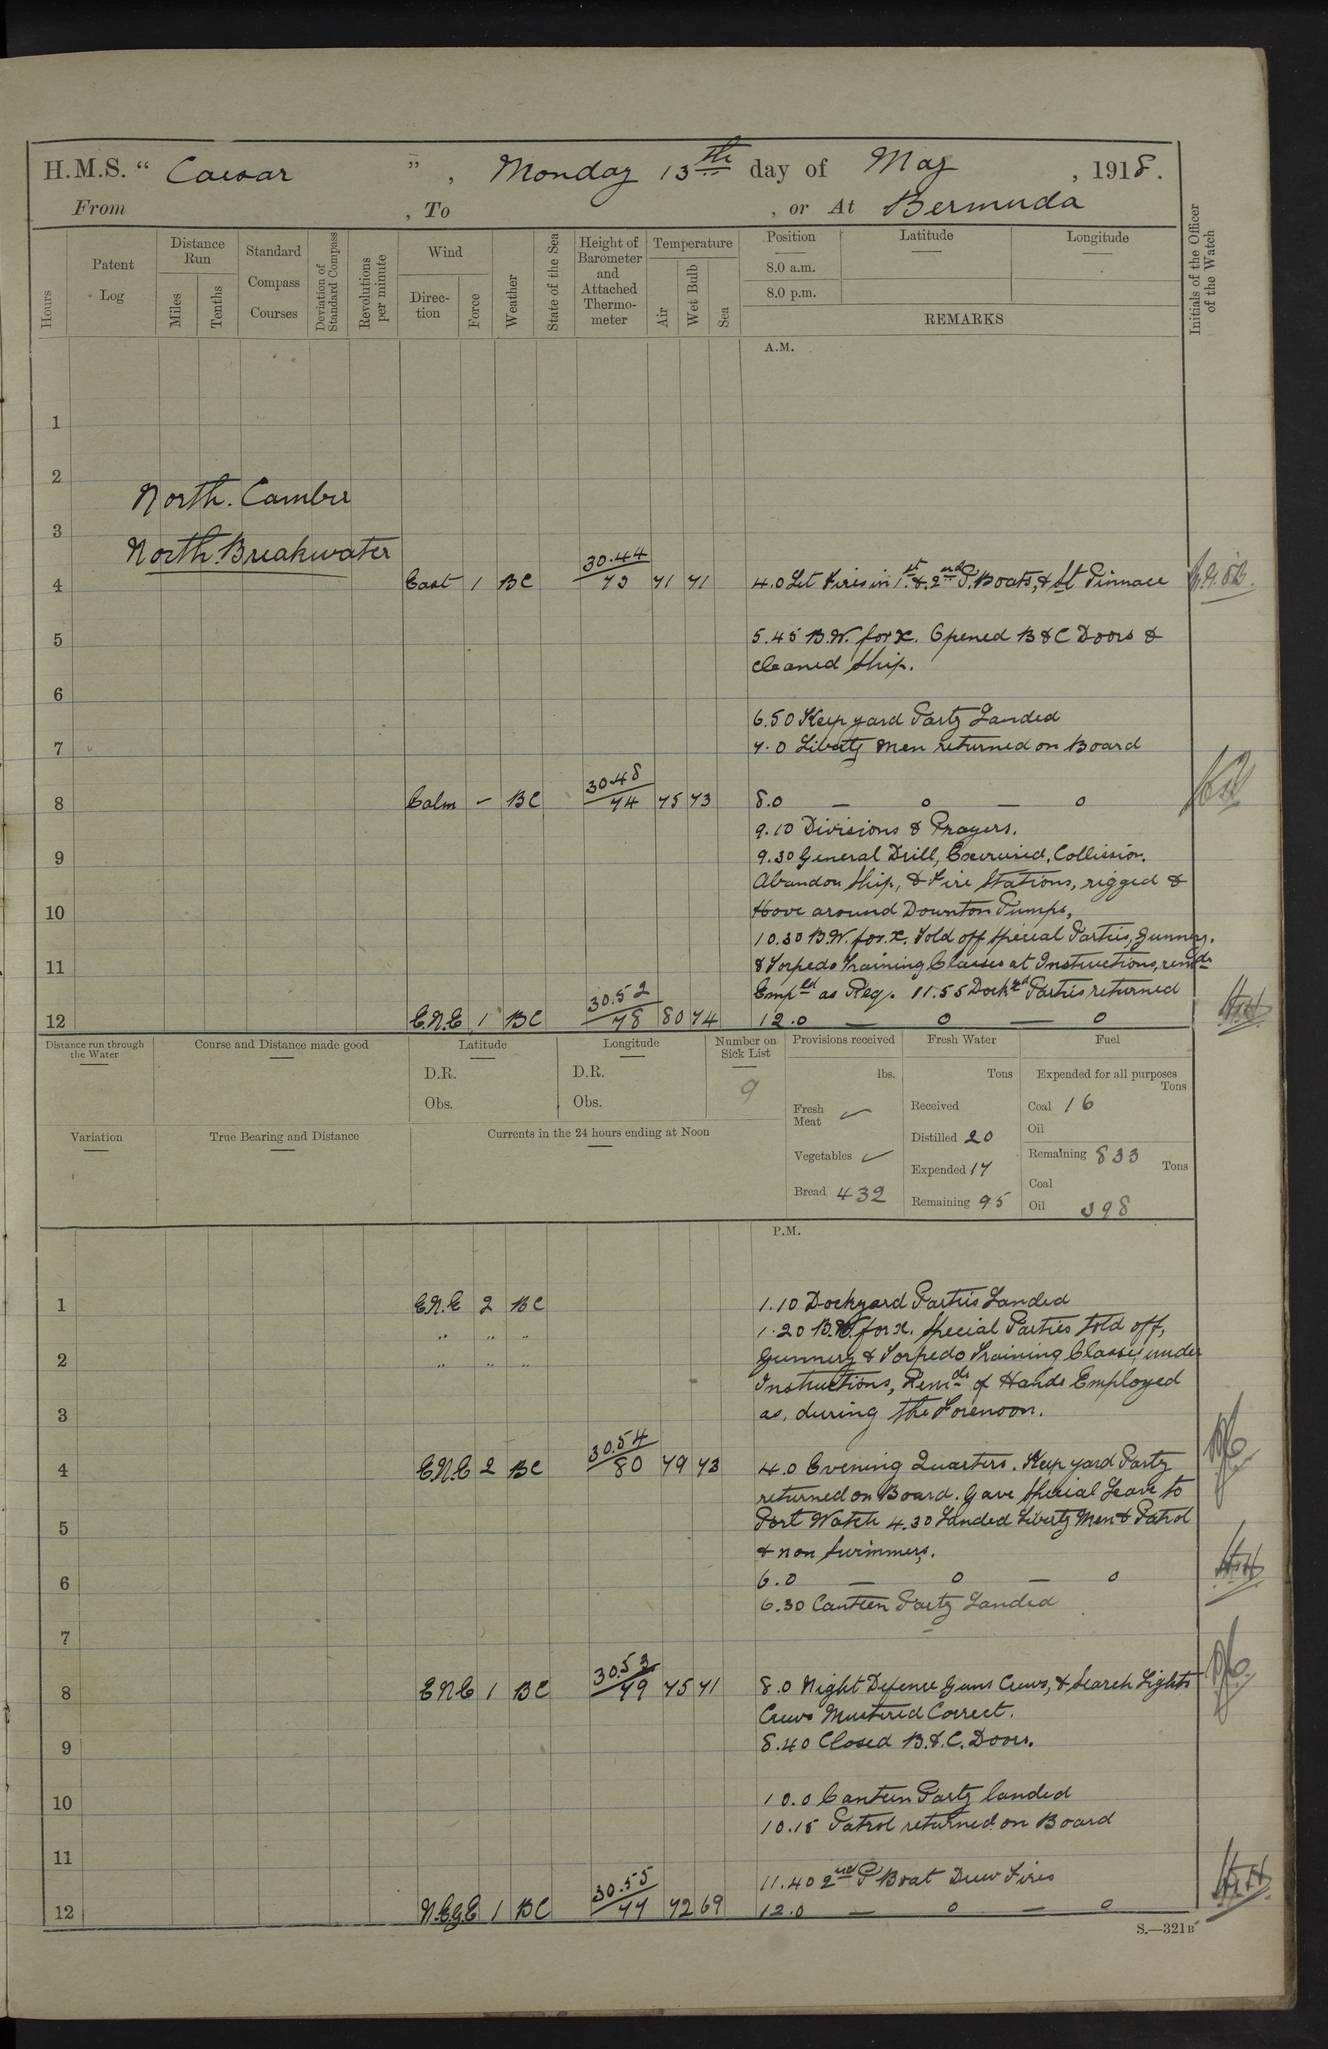 H.M.S. " Caesar ", Monday 13th day of May, 1918.
From , To , or At Bermuda
Hours
Patent Log
Distance Run
Miles
Tenths
Standard Compass Courses
Deviation of Standard Compass
Revolutions per minute
Wind
Direction
Force
Weather
State of the Sea
Height of Barometer and Attached Thermometer
Temperature
Air
Wet Bulb
Sea
Position
8.0 a.m.
8.0 p.m.
Latitude
Longitude
REMARKS
Initials of the Officer of the Watch
A.M.
1
2
North. Camber
3
North Breakwater
4 East 1 BC 30.44 73 71 71 4.0 Let Fires in 1st & 2nd P. Boats, & St Pinnace
5 5.45 B.W. for x. Opened B & C Doors &
cleaned Ship.
6
6.50 Keep yard Party Landed
7 7.0 Liberty Men returned on Board
8 Calm - BC 30.48 74 75 73 8.0 — 0 — 0
9.10 Divisions & Prayers.
9 9.30 General Drill, Exercised, Collision.
Abandon Ship, & Fire Stations, rigged &
10 Hove around Downton Pumps,
10.30 B.W. for. x. Told off Special Parties, Gunnery.
11 & Torpedo Training Classes at Instructions, remdr
Empled as Req. 11.55 Dockyd Parties returned
12 E.N.E 1 BC 30.52 78 80 74 12.0 — 0 — 0
Distance run through the Water
Course and Distance made good
Latitude
D.R.
Obs.
Longitude
D.R.
Obs.
Number on Sick List
9
Variation
True Bearing and Distance
Currents in the 24 hours ending at Noon
Provisions received
lbs.
Fresh Meat ✓
Vegetables ✓
Bread 432
Fresh Water
Tons
Received
Distilled 20
Expended 17
Remaining 95
Fuel
Expended for all purposes
Tons
Coal 16
Oil
Remaining 833
Tons
Coal
Oil 398
P.M.
1 E.N.E 2 BC 1.10 Dockyard Parties Landed
" " " 1.20 B.W. for x. Special Parties told off,
2 " " " Gunnery & Torpedo Training Classes under
Instructions, Remdr of Hands Employed
3 as, during the Forenoon.
4 E.N.E 2 BC 30.54 80 79 73 4.0 Evening Quarters. Keep yard Party
returned on Board. Gave Special Leave to
5 Port Watch 4.30 Landed Liberty Men & Patrol
& non Swimmers.
6 6.0 — 0 — 0
6.30 Canteen Party Landed
7
8 ENE 1 BC 30.53 79 75 71 8.0 Night Defence Guns Crews, & Search Lights
Crews Mustered Correct.
9 8.40 Closed B. & C. Doors.
10 10.0 Canteen Party landed
10.15 Patrol returned on Board
11
11.40 2nd P Boat Drew Fires
12 N.E.g.E 1 BC 30.55 77 72 69 12.0 — 0 — 0
S.—321B